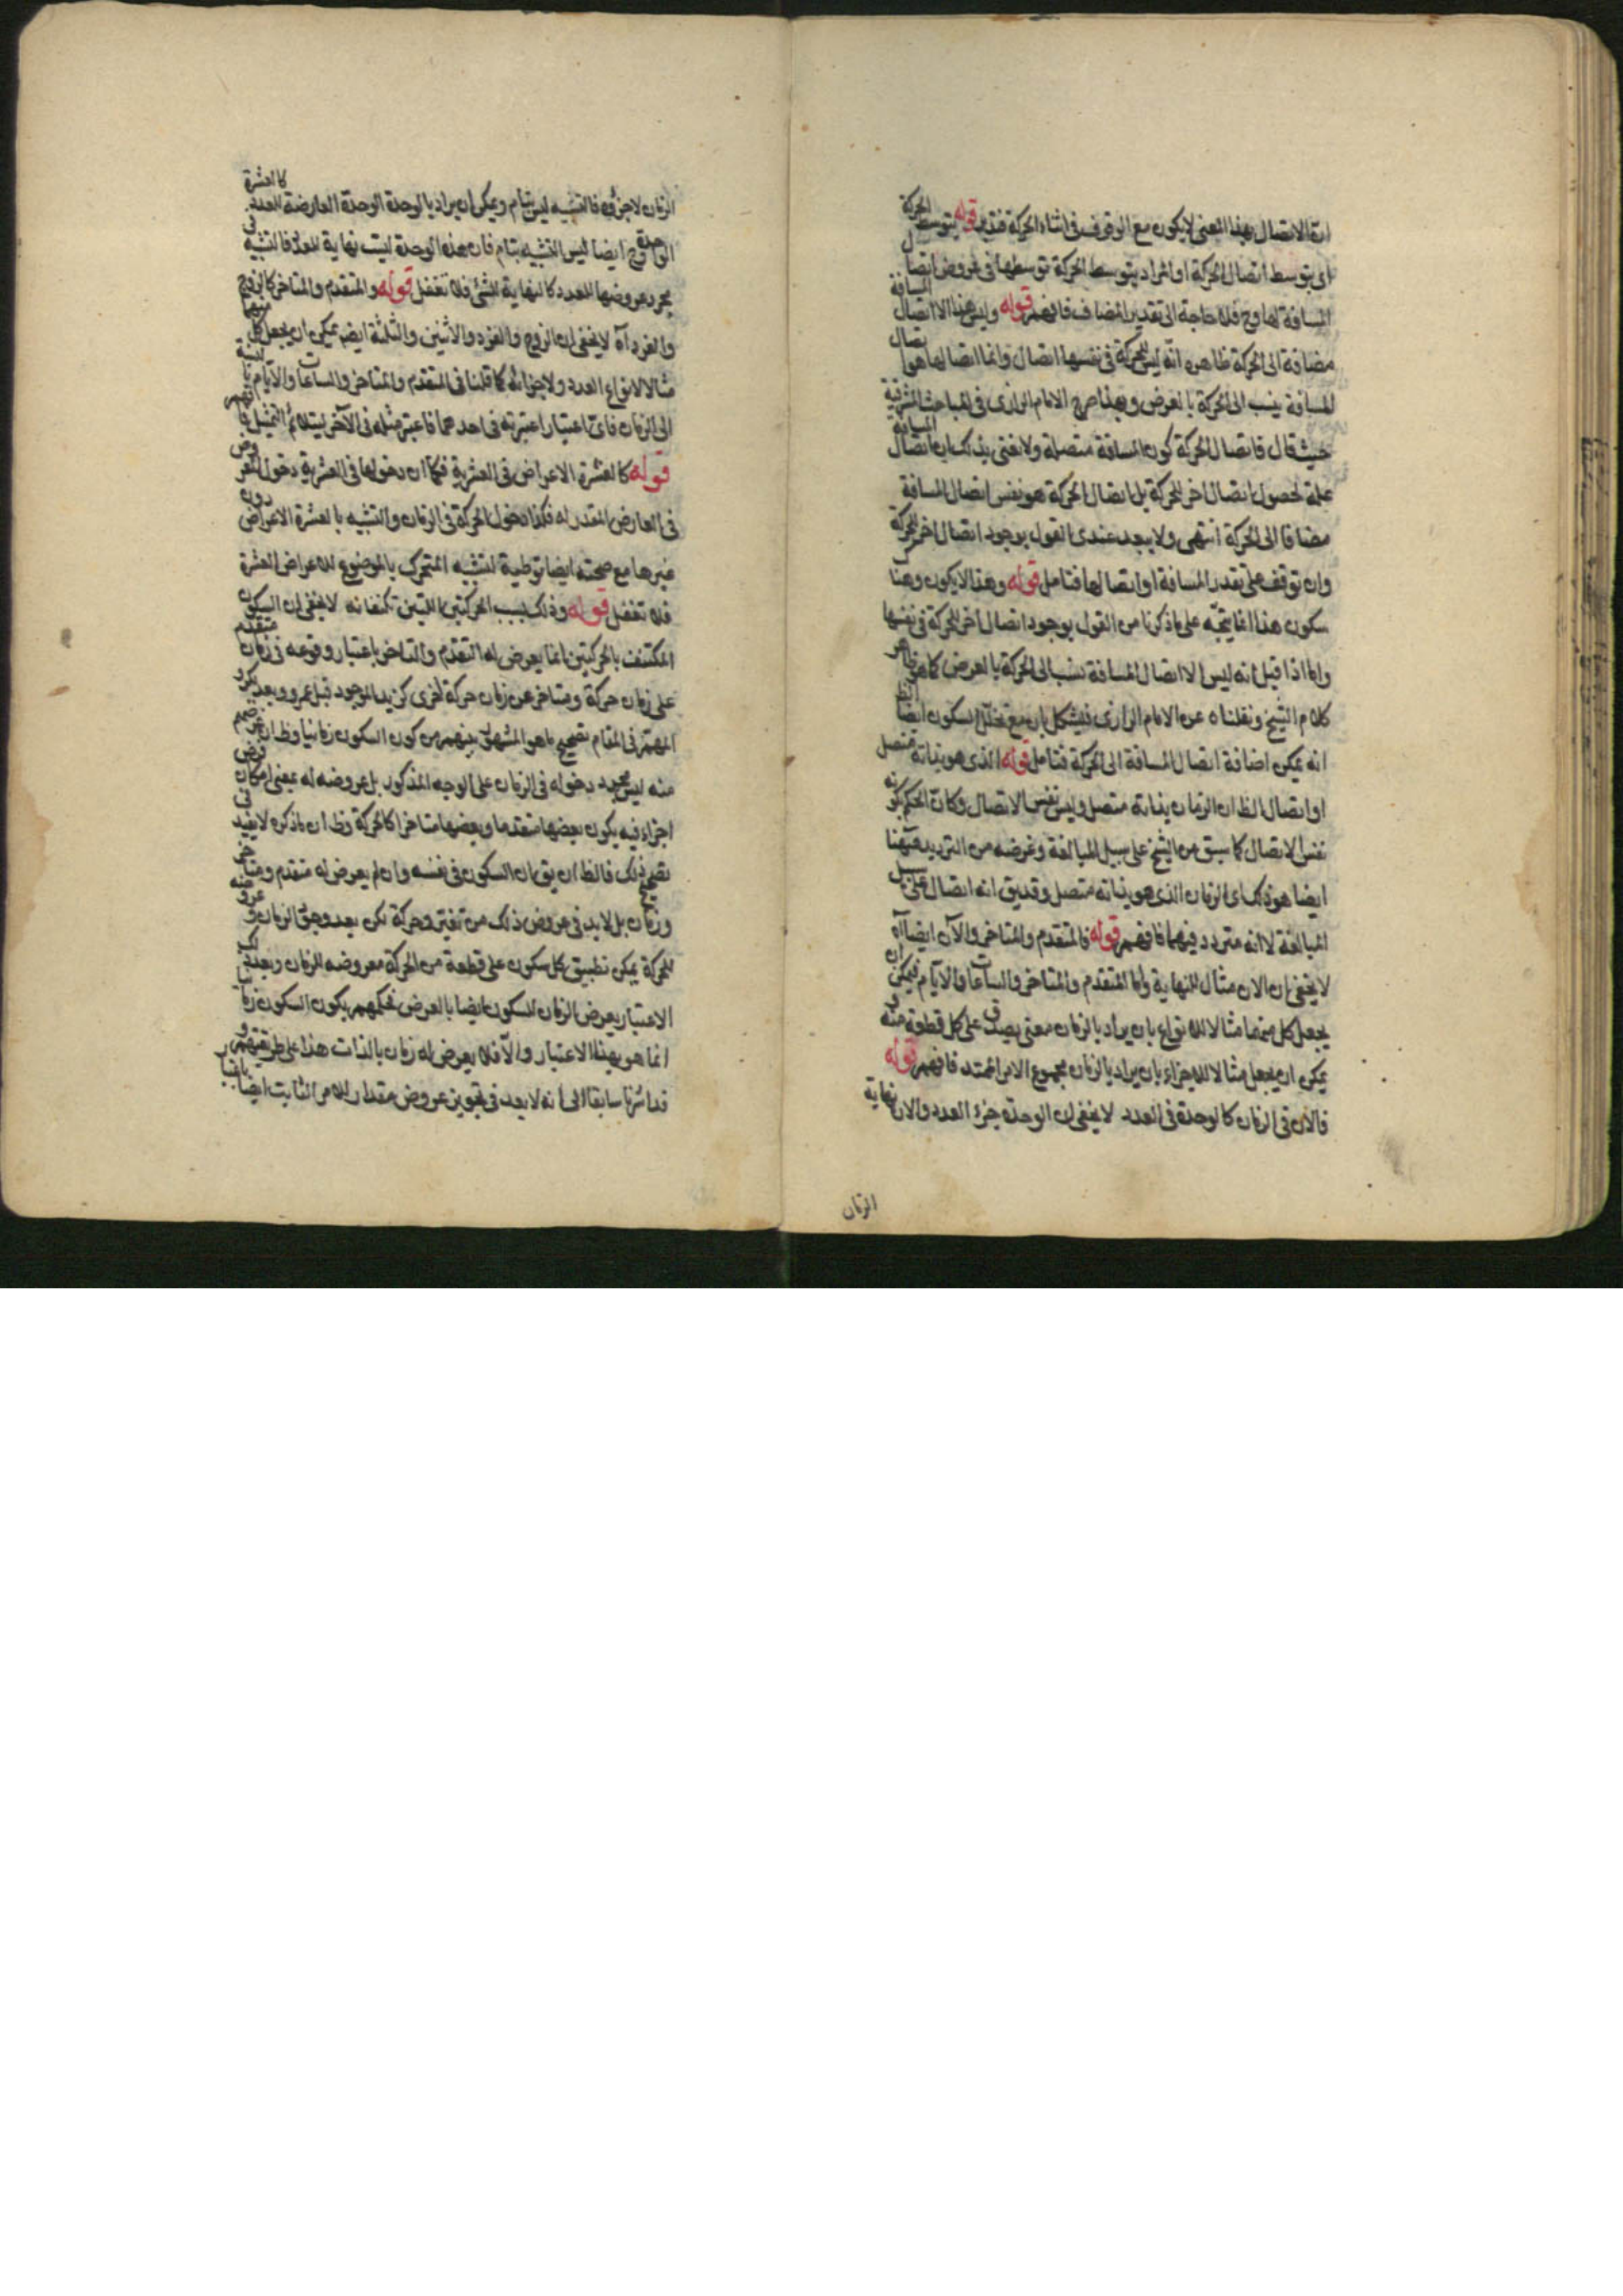 ان الاتصال بهذا المعنى لا يكون مع الوقوف فى اثناء الحركة فتدبر قوله بتوسط الحركة
اى بتوسط اتصال الحركة او المراد بتوسط الحركة توسطها فى عروض اتصال
المسافة لها وح فلا حاجة الى تقدير المضاف فافهم قوله وليس هذا الا اتصال المسافة
مضافة الى الحركة ظاهره انه ليس للحركة فى نفسها اتصال وانما اتصالها هو اتصال
المسافة ينسب الى الحركة بالعرض وبهذا صرح الامام الرازى فى المباحث المشرقية
حيث قال فاتصال الحركة كون المسافة متصلة ولا نعنى بذلك ان اتصال المسافة
علة لحصول اتصال اخر للحركة بل اتصال الحركة هو نفس اتصال المسافة
مضافا الى الحركة انتهى ولا يبعد عندى القول بوجود اتصال اخر للحركة
وان توقف على تقدر المسافة او اتصالها فتامل قوله وهذا لا يكون وهنا
سكون هذا انما يتجه على ما ذكرنا من القول بوجود اتصال اخر للحركة فى نفسها
واما اذا قيل انه ليس الا اتصال المسافة نسب الى الحركة بالعرض كما هو ظاهر
كلام الشيخ ونقلناه عن الامام الرازى فيشكل بان مع تخلل السكون ايضا الظ
انه يمكن اضافة اتصال المسافة الى الحركة فتامل قوله الذى هو بذاته متصل
او اتصال الظ ان الزمان بذاته متصل وليس نفس الاتصال وكان الحكم بكونه
نفس الاتصال كما سبق من الشيخ على سبيل المبالغة وغرضه من الترديد ههنا
ايضا هو ذلك اى الزمان الذى هو بذاته متصل وقد يق انه اتصال على سبيل
المبالغة لا انه متردد فيهما فافهم قوله فالمتقدم والمتاخر والآن ايضا آه
لا يخفى ان الان مثال للنهاية واما المتقدم والمتاخر والساعات والايام فيمكن ان
يجعل كل منهما مثالا للانواع بان يراد بالزمان معنى يصدق على كل قطعة منه و
يمكن ان يجعل مثالا للاجزاء بان يراد بالزمان مجموع الامر الممتد فافهم قوله
فالان فى الزمان كالوحدة فى العدد لا يخفى ان الوحدة جزء العدد والان نهاية
الزمان
الزمان لا جزؤه فالتشبيه ليس بتام ويمكن ان يراد بالوحدة الوحدة العارضة للعدد كالعشرة
الواحدة وح ايضا ليس التشبيه بتام فان هذه الوحدة ليست نهاية للعدد فالتشبيه فى
مجرد عروضها للعدد كالنهاية للشئ فلا تغفل قوله والمتقدم والمتاخر كالزوج
والفرد آه لا يخفى ان الزوج والفرد والاثنين والثلثة ايضا يمكن ان يجعل كل منهما
مثالا لانواع العدد ولاجزائه كما قلنا فى المتقدم والمتاخر والساعات والايام بالنسبة
الى الزمان فاى اعتبار اعتبرته فى احدهما فاعتبر مثله فى الآخر ليتلائم التمثيل فافهم
قوله كالعشرة الاعراض فى العشرية فكما ان دخولها فى العشرية دخول المعروض
فى العارض المقدر له فكذا دخول الحركة فى الزمان والتشبيه بالعشرة الاعراض دون
غيرها مع صحته ايضا توطية لتشبيه المتحرك بالموضوع للاعراض العشرة
فلا تغفل قوله وذلك بسبب الحركتين اللتين تكتنفانه لا يخفى ان السكون
المكتنف بالحركتين انما يعرض له التقدم والتاخر باعتبار وقوعه فى زمان متقدم
على زمان حركة ومتاخر عن زمان حركة اخرى كزيد الموجود قبل عمرو وبعد بكر و
المهم فى المقام تصحيح ما هو المشهور بينهم من كون السكون زمانيا وظ ان غرضهم
منه ليس مجرد دخوله فى الزمان على الوجه المذكور بل عروضه له بمعنى امكان فرض
اجزاء فيه يكون بعضها متقدما وبعضها متاخرا كالحركة وظ ان ما ذكره لا يفيد فى
تصحيح ذلك فالظ ان يق ان السكون فى نفسه وان لم يعرض له متقدم ومتاخر
وزمان بل لا بد فى عروض ذلك من تغير وحركة لكن بعد وجود الزمان وعروضه
للحركة يمكن تطبيق كل سكون على قطعة من الحركة معروضه للزمان وبعد ذلك
الاعتبار يعرض الزمان للسكون ايضا بالعرض فحكمهم بكون السكون زمانيا
انما هو بهذا الاعتبار والا فلا يعرض له زمان بالذات هذا على طريقتهم و
قد اشرنا سابقا الى انه لا بعد فى تجويز عروض مقدار للامر الثابت ايضا باعتبار